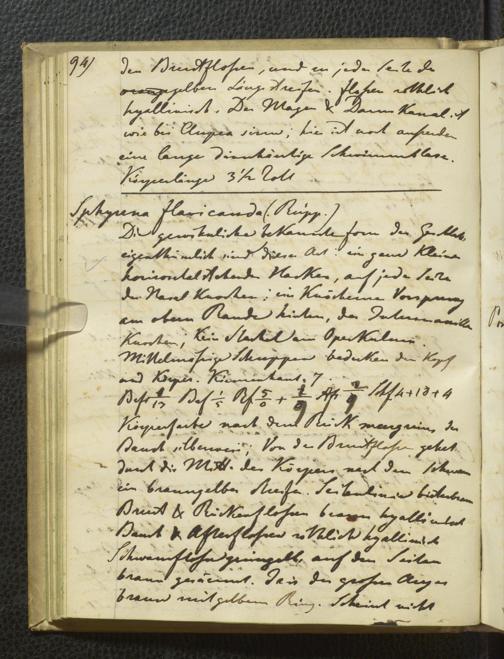 94/ den Brustflossen, und in jeder Seite der
orangegelben Längsstreifen. Flossen röthlich
hyallinisch. Der Magen & Darm Kanal ist
wie bei Clupea sirm; hier ist noch ausserdem
eine lange dünnhäutige Schwimmblase.
Körperlänge 3½ Zoll
Sphyrena flavicauda (Rüpp.)
Die gewöhnliche bekannte form der Gattung
eigenthümlich sind dieser Art: ein ganz kleiner
horizontal stehender Hacken, auf jeder Seite
der Nasal Knochen; ein Knöcherner Vorsprung
am obern Rande hinten, der Intermaxillar
Knochen; kein Stachel am Operkulum.
Mittelmässige Schuppen bedecken den Kopf
und Körper. Kiemenhaut. 7
Körperfarbe nach dem Rück meergrün, der
Bauch silberweis; Von den Brustflossen gehet
durch die Mitte des Körpers nach dem Schwanz
ein braungelber Streifen. Seitenlinie
Brust & Rückenflossen braun hyallinisch
Bauch & Afterflossen röthlich hyallinisch
Schwanzflosse grüngelb auf den Seiten
braun gesäumt. Iris der grossen Augen
braun mit gelbem Ring. Scheint nicht